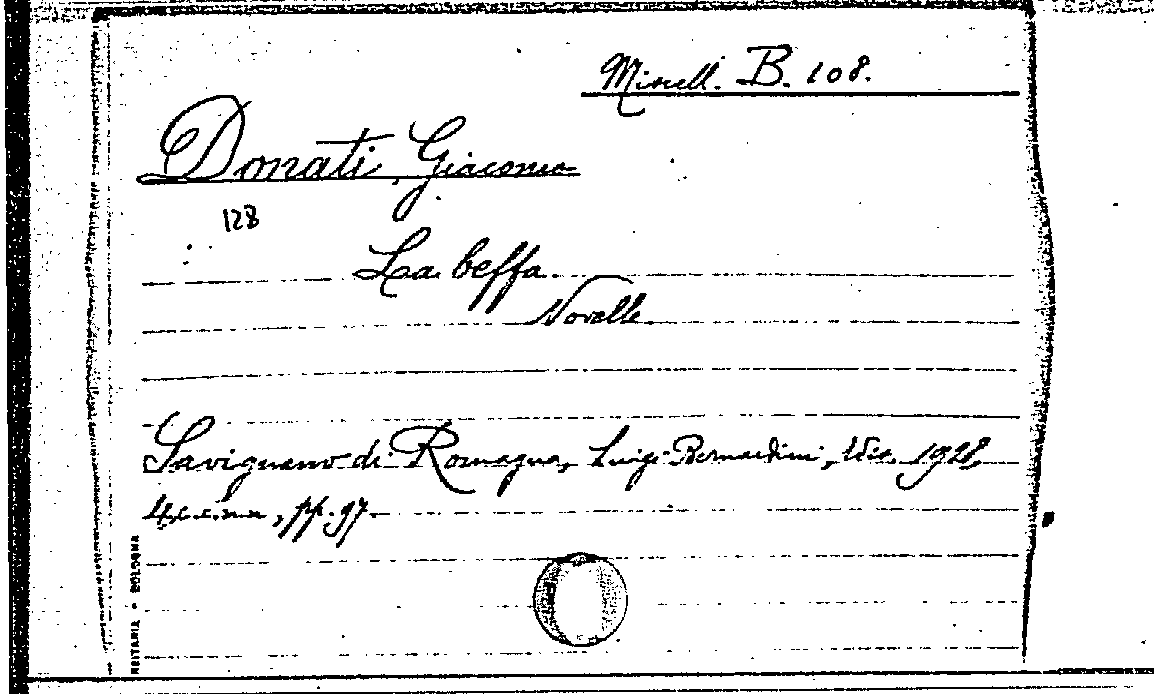 Miscell. B. 108.
Donati Giacomo
128
La beffa.
Novelle
Savignano di Romagna, Luigi Bernardini, 1928,
pp. 97.
BOLOGNA